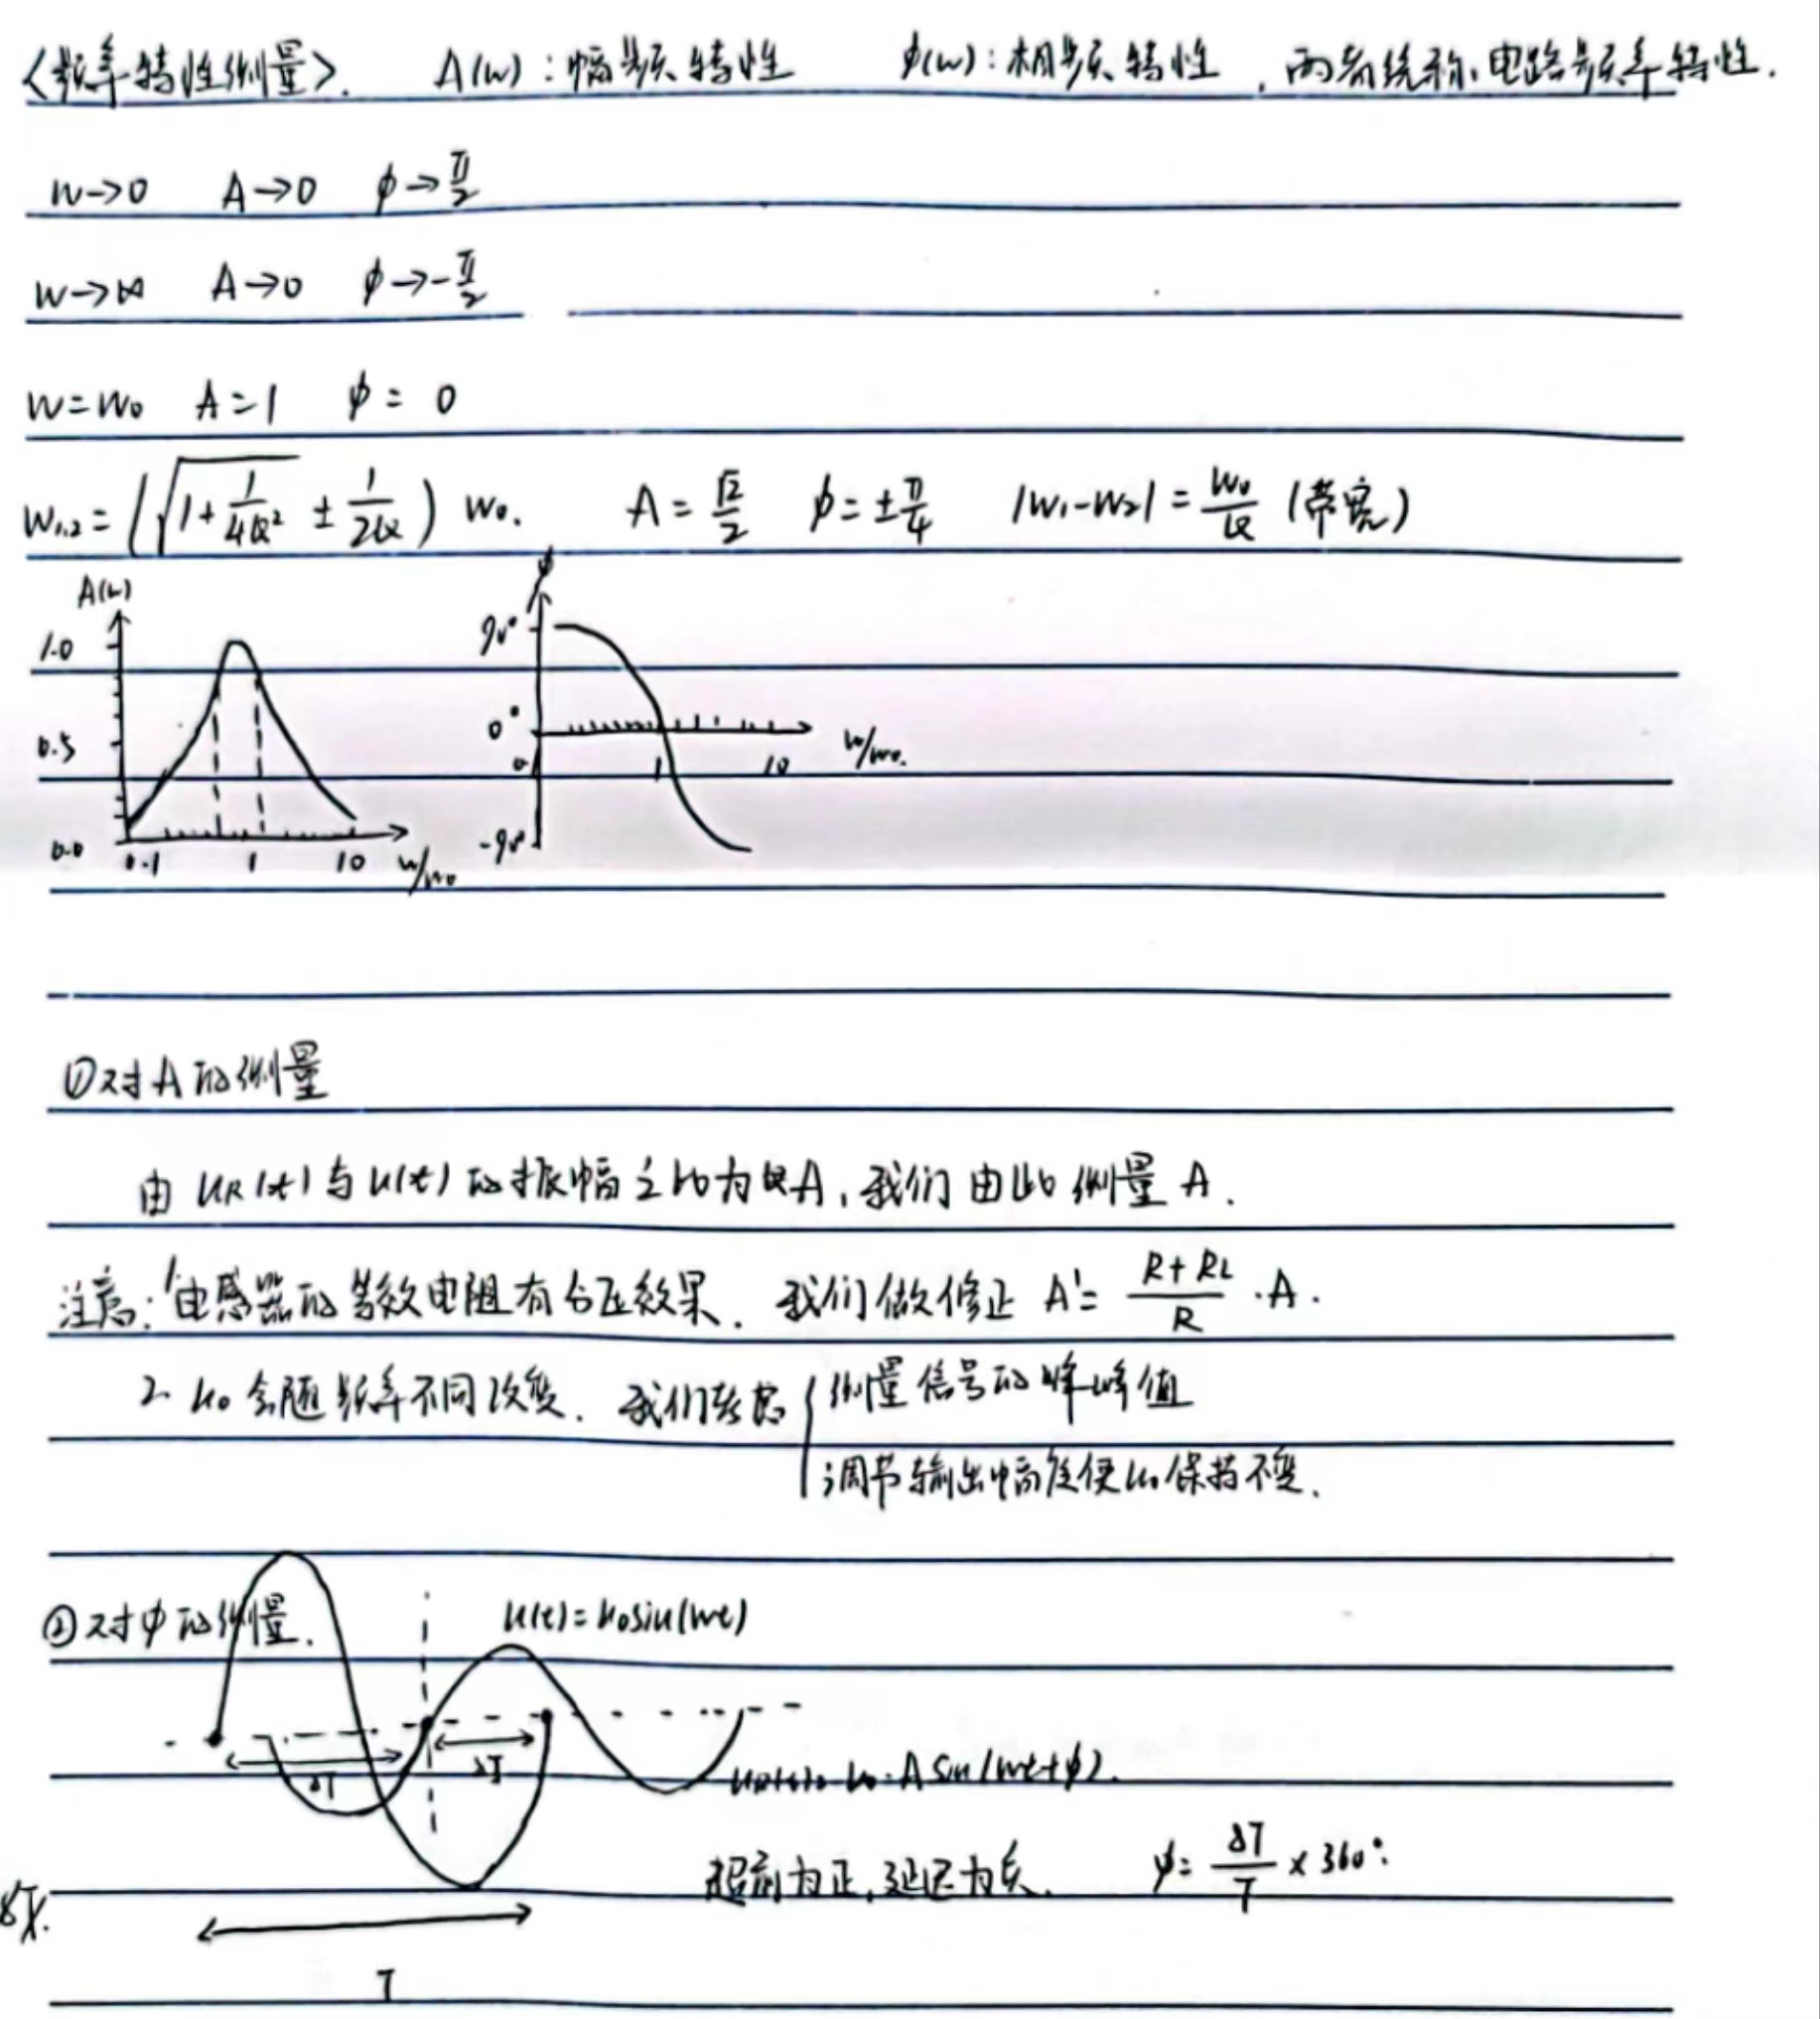 <频率特性测量>. A(w):幅频特性 φ(w):相频特性,两者统称电路频率特性.
w→0 A→0 φ→π/2
w→∞ A→0 φ→-π/2
w=w₀ A=1 φ=0
w₁,₂=(√(1+1/4Q²) ± 1/2Q) w₀. A=√2/2 φ=±π/4 |w₁-w₂|=w₀/Q (带宽)
A(w)
1.0
0.5
0.0
0.1 1 10 w/w₀
φ
90°
0°
-90°
1 10 w/w₀.
①对A的测量
由 uR(t)与u(t)的振幅之比为A,我们由此测量A.
注意:1电感器的等效电阻有分压效果. 我们做修正 A'=(R+RL)/R·A.
2. u₀会随频率不同改变. 我们考虑{测量信号的峰峰值
调节输出幅度使u₀保持不变.
②对φ的测量.
u(t)=u₀sin(wt)
ΔT ΔT
uR(t)=u₀·A sin(wt+φ).
超前为正,延迟为负. φ=ΔT/T×360°.
T